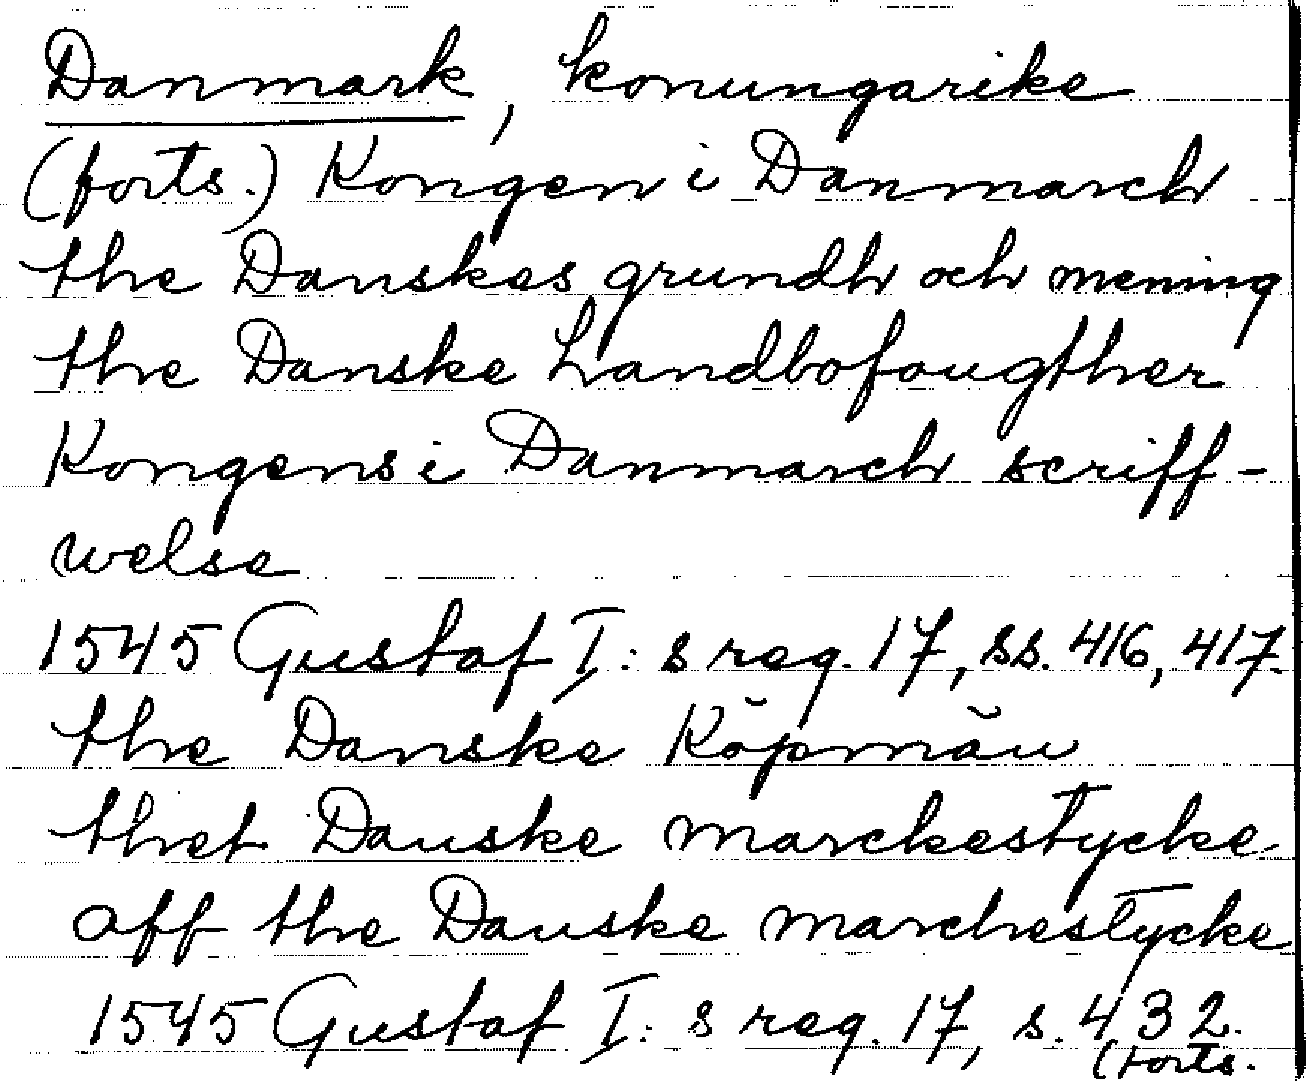 Danmark, konungarike
(forts.) Kongen i Danmarch
the Danskes grundh och mening
the Danske Landbofougther
Kongens i Danmarch scriff-
welse
1545 Gustaf I:s reg. 17, ss. 416, 417.
the Danske Köpmäu
thet Danske marckestycke
aff the Danske marchestycke
1545 Gustaf I:s reg. 17, s. 432.
(forts.